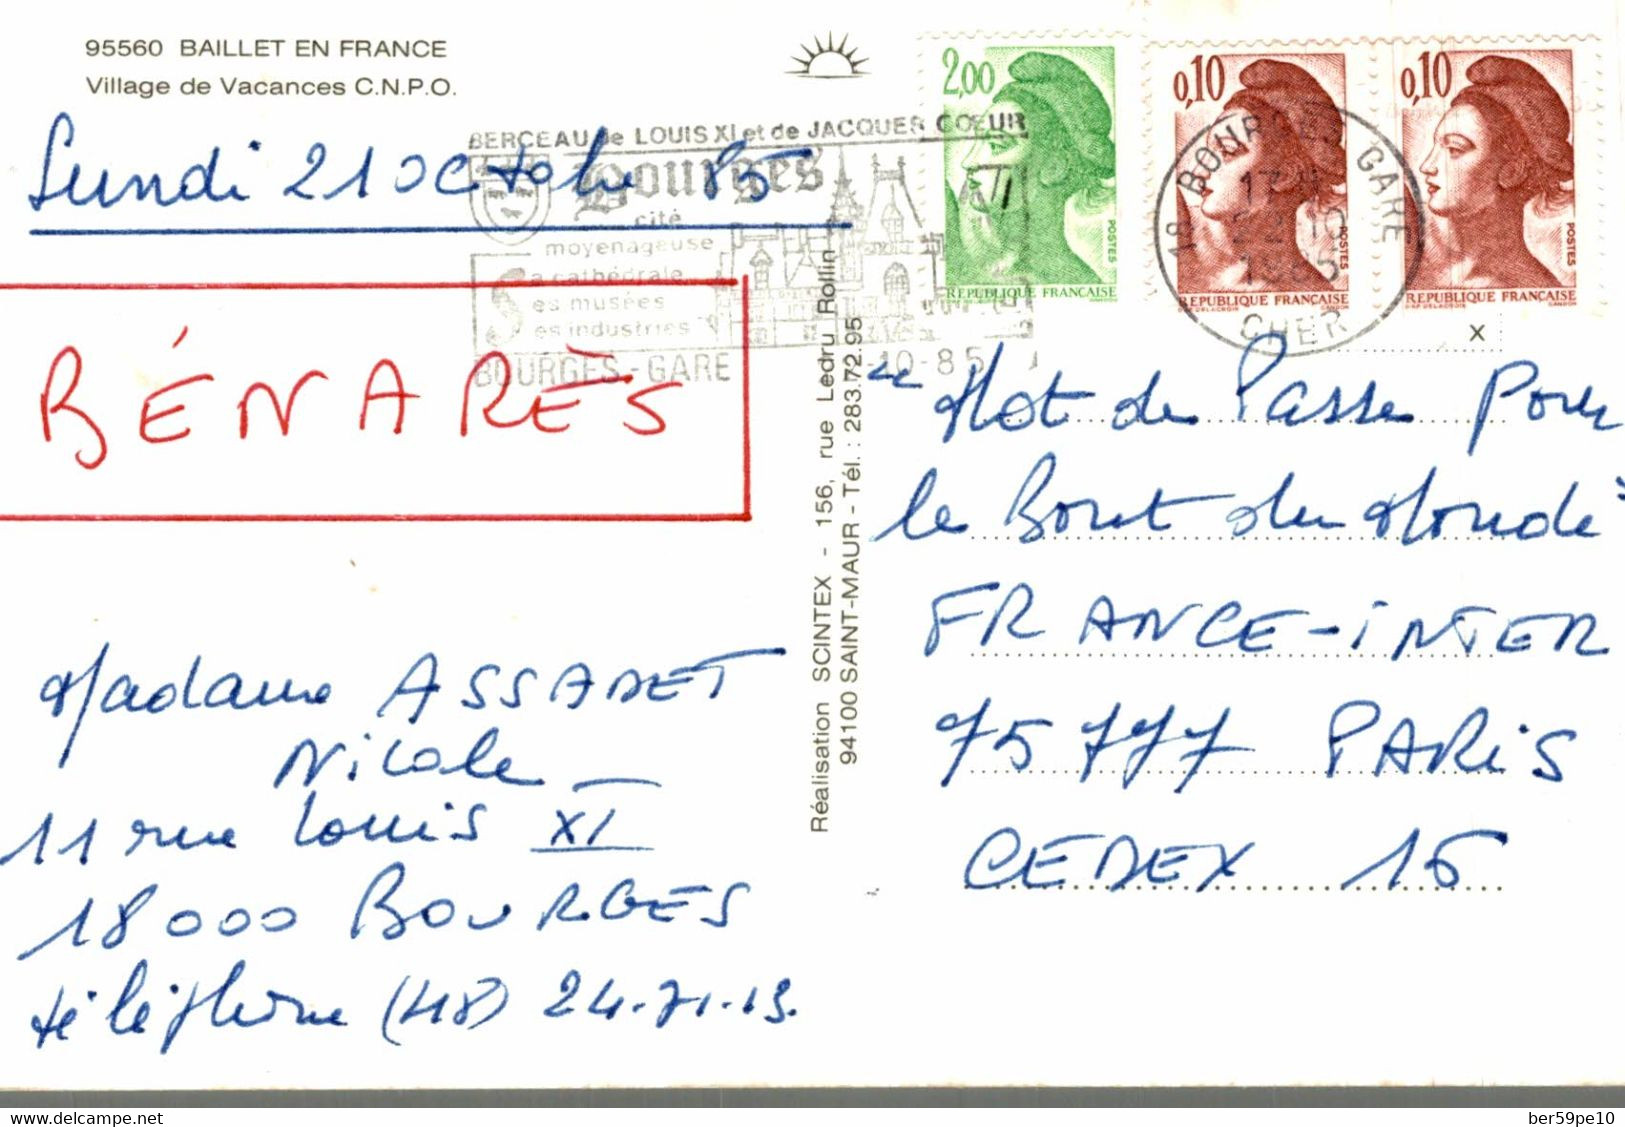 95560 BAILLET EN FRANCE
Village de Vacances C.N.P.O.
Lundi 21 octobre 85
BERCEAU de LOUIS XI et de JACQUES CŒUR
Bourges
cité
moyenageuse
Sa cathédrale
Ses musées
Ses industries
BOURGES - GARE
-10-85
2,00
POSTES
REPUBLIQUE FRANÇAISE
0,10
POSTES
REPUBLIQUE FRANÇAISE
0,10
POSTES
REPUBLIQUE FRANÇAISE
18 BOURGES GARE
17 H
22-10
1985
CHER
x
BÉNARÈS
Réalisation SCINTEX - 156, rue Ledru Rollin
94100 SAINT-MAUR - Tél. : 283.72.95
"Mot de Passe Pour
le Bout du Monde"
FRANCE-INTER
75777 PARIS
CEDEX 16
Madame ASSADET
Nicole
11 rue Louis XI
18000 BOURGES
téléphone (48) 24-71-13.
delcampe.net
ber59pe10